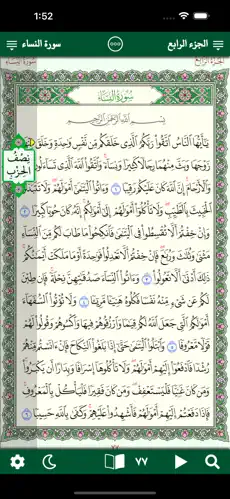 1:52
الجزء الرابع
سورة النساء
الجزء الرابع
سورة النساء
سُورَةُ النِّسَاءِ
بِسْمِ ٱللَّهِ ٱلرَّحْمَٰنِ ٱلرَّحِيمِ
يَٰٓأَيُّهَا ٱلنَّاسُ ٱتَّقُوا۟ رَبَّكُمُ ٱلَّذِى خَلَقَكُم مِّن نَّفْسٍ وَٰحِدَةٍ وَخَلَقَ
زَوْجَهَا وَبَثَّ مِنْهُمَا رِجَالًا كَثِيرًا وَنِسَآءً ۚ وَٱتَّقُوا۟ ٱللَّهَ ٱلَّذِى تَسَآءَلُونَ
وَٱلْأَرْحَامَ ۚ إِنَّ ٱللَّهَ كَانَ عَلَيْكُمْ رَقِيبًا ١ وَءَاتُوا۟ ٱلْيَتَٰمَىٰٓ أَمْوَٰلَهُمْ ۖ وَلَا تَتَبَدَّلُوا۟
ٱلْخَبِيثَ بِٱلطَّيِّبِ ۖ وَلَا تَأْكُلُوٓا۟ أَمْوَٰلَهُمْ إِلَىٰٓ أَمْوَٰلِكُمْ ۚ إِنَّهُۥ كَانَ حُوبًا كَبِيرًا ٢
وَإِنْ خِفْتُمْ أَلَّا تُقْسِطُوا۟ فِى ٱلْيَتَٰمَىٰ فَٱنكِحُوا۟ مَا طَابَ لَكُم مِّنَ ٱلنِّسَآءِ
مَثْنَىٰ وَثُلَٰثَ وَرُبَٰعَ ۖ فَإِنْ خِفْتُمْ أَلَّا تَعْدِلُوا۟ فَوَٰحِدَةً أَوْ مَا مَلَكَتْ أَيْمَٰنُكُمْ ۚ
ذَٰلِكَ أَدْنَىٰٓ أَلَّا تَعُولُوا۟ ٣ وَءَاتُوا۟ ٱلنِّسَآءَ صَدُقَٰتِهِنَّ نِحْلَةً ۚ فَإِن طِبْنَ
لَكُمْ عَن شَىْءٍ مِّنْهُ نَفْسًا فَكُلُوهُ هَنِيٓـًٔا مَّرِيٓـًٔا ٤ وَلَا تُؤْتُوا۟ ٱلسُّفَهَآءَ
أَمْوَٰلَكُمُ ٱلَّتِى جَعَلَ ٱللَّهُ لَكُمْ قِيَٰمًا وَٱرْزُقُوهُمْ فِيهَا وَٱكْسُوهُمْ وَقُولُوا۟ لَهُمْ
قَوْلًا مَّعْرُوفًا ٥ وَٱبْتَلُوا۟ ٱلْيَتَٰمَىٰ حَتَّىٰٓ إِذَا بَلَغُوا۟ ٱلنِّكَاحَ فَإِنْ ءَانَسْتُم مِّنْهُمْ
رُشْدًا فَٱدْفَعُوٓا۟ إِلَيْهِمْ أَمْوَٰلَهُمْ ۖ وَلَا تَأْكُلُوهَآ إِسْرَافًا وَبِدَارًا أَن يَكْبَرُوا۟ ۚ
وَمَن كَانَ غَنِيًّا فَلْيَسْتَعْفِفْ ۖ وَمَن كَانَ فَقِيرًا فَلْيَأْكُلْ بِٱلْمَعْرُوفِ ۚ
فَإِذَا دَفَعْتُمْ إِلَيْهِمْ أَمْوَٰلَهُمْ فَأَشْهِدُوا۟ عَلَيْهِمْ ۚ وَكَفَىٰ بِٱللَّهِ حَسِيبًا ٦
نِصْفُ
الحِزْبِ
٧٧
٧٧